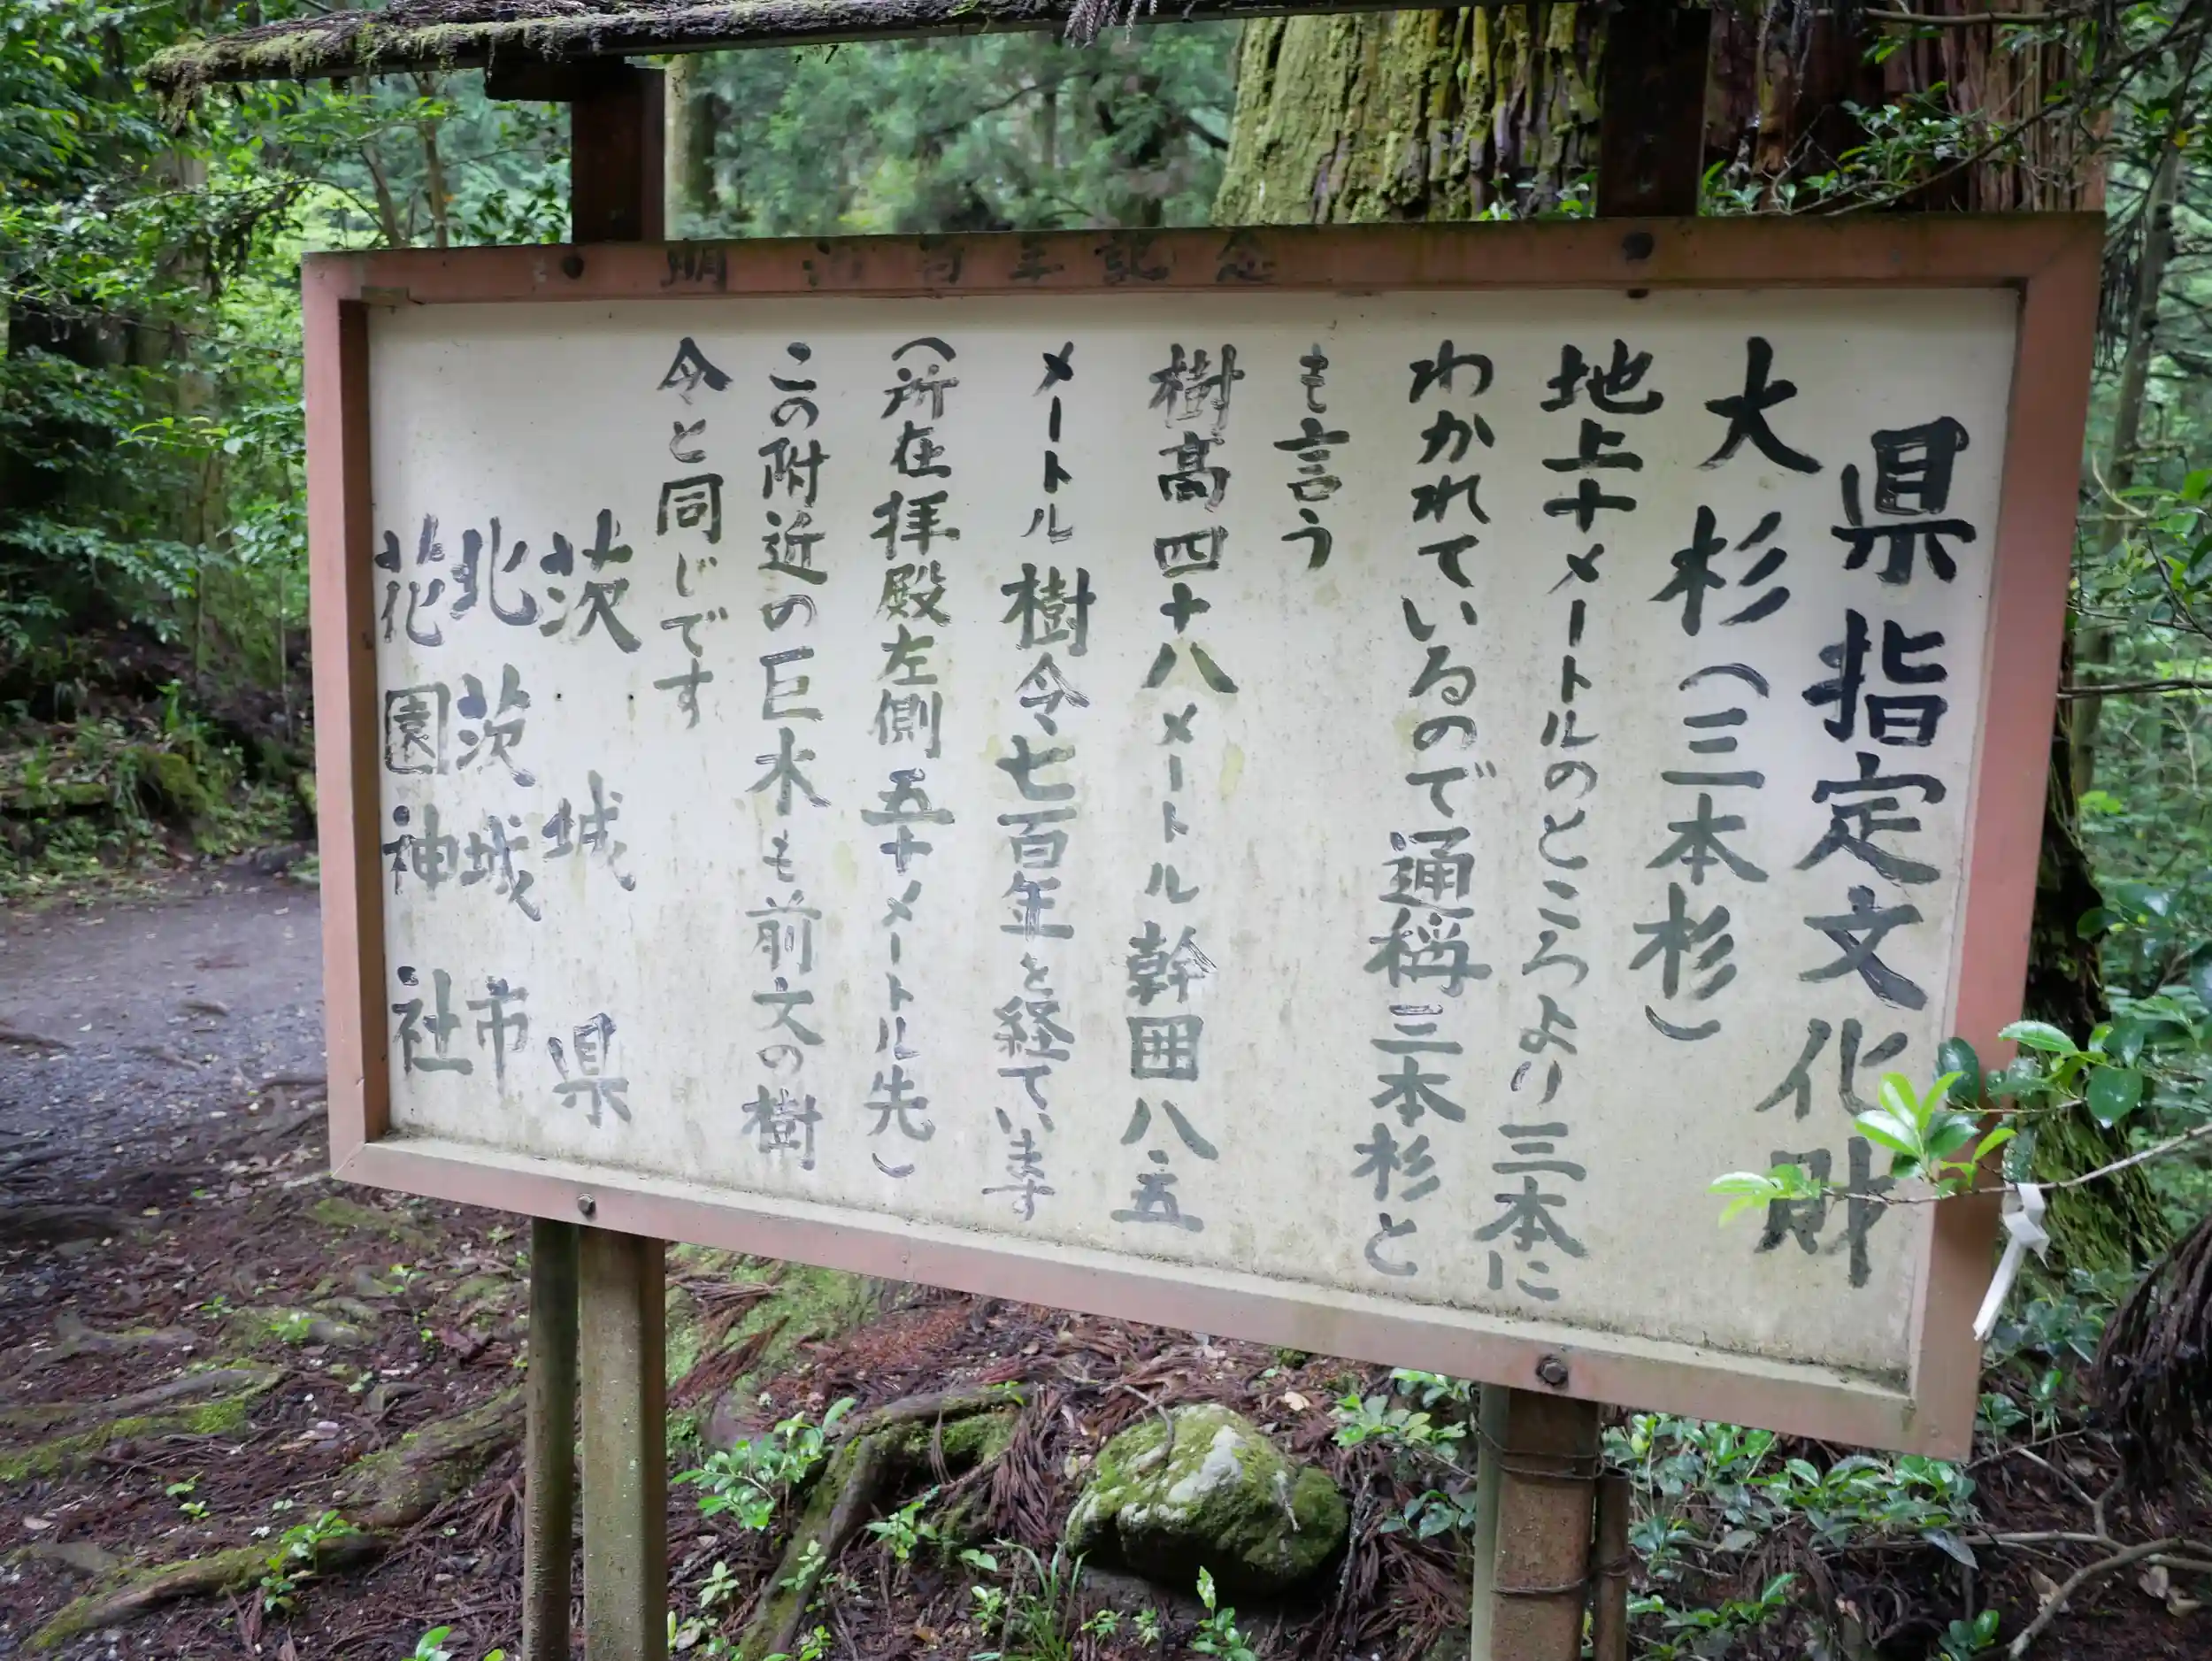 明治百年記念
県指定文化財
大杉（三本杉）
地上十メートルのところより三本に
わかれているので通称三本杉と
も言う
樹高四十八メートル幹囲八・五
メートル樹令七百年と経ています
（所在拝殿左側五十メートル先）
この附近の巨木も前文の樹
令と同じです
茨城県
北茨城市
花園神社